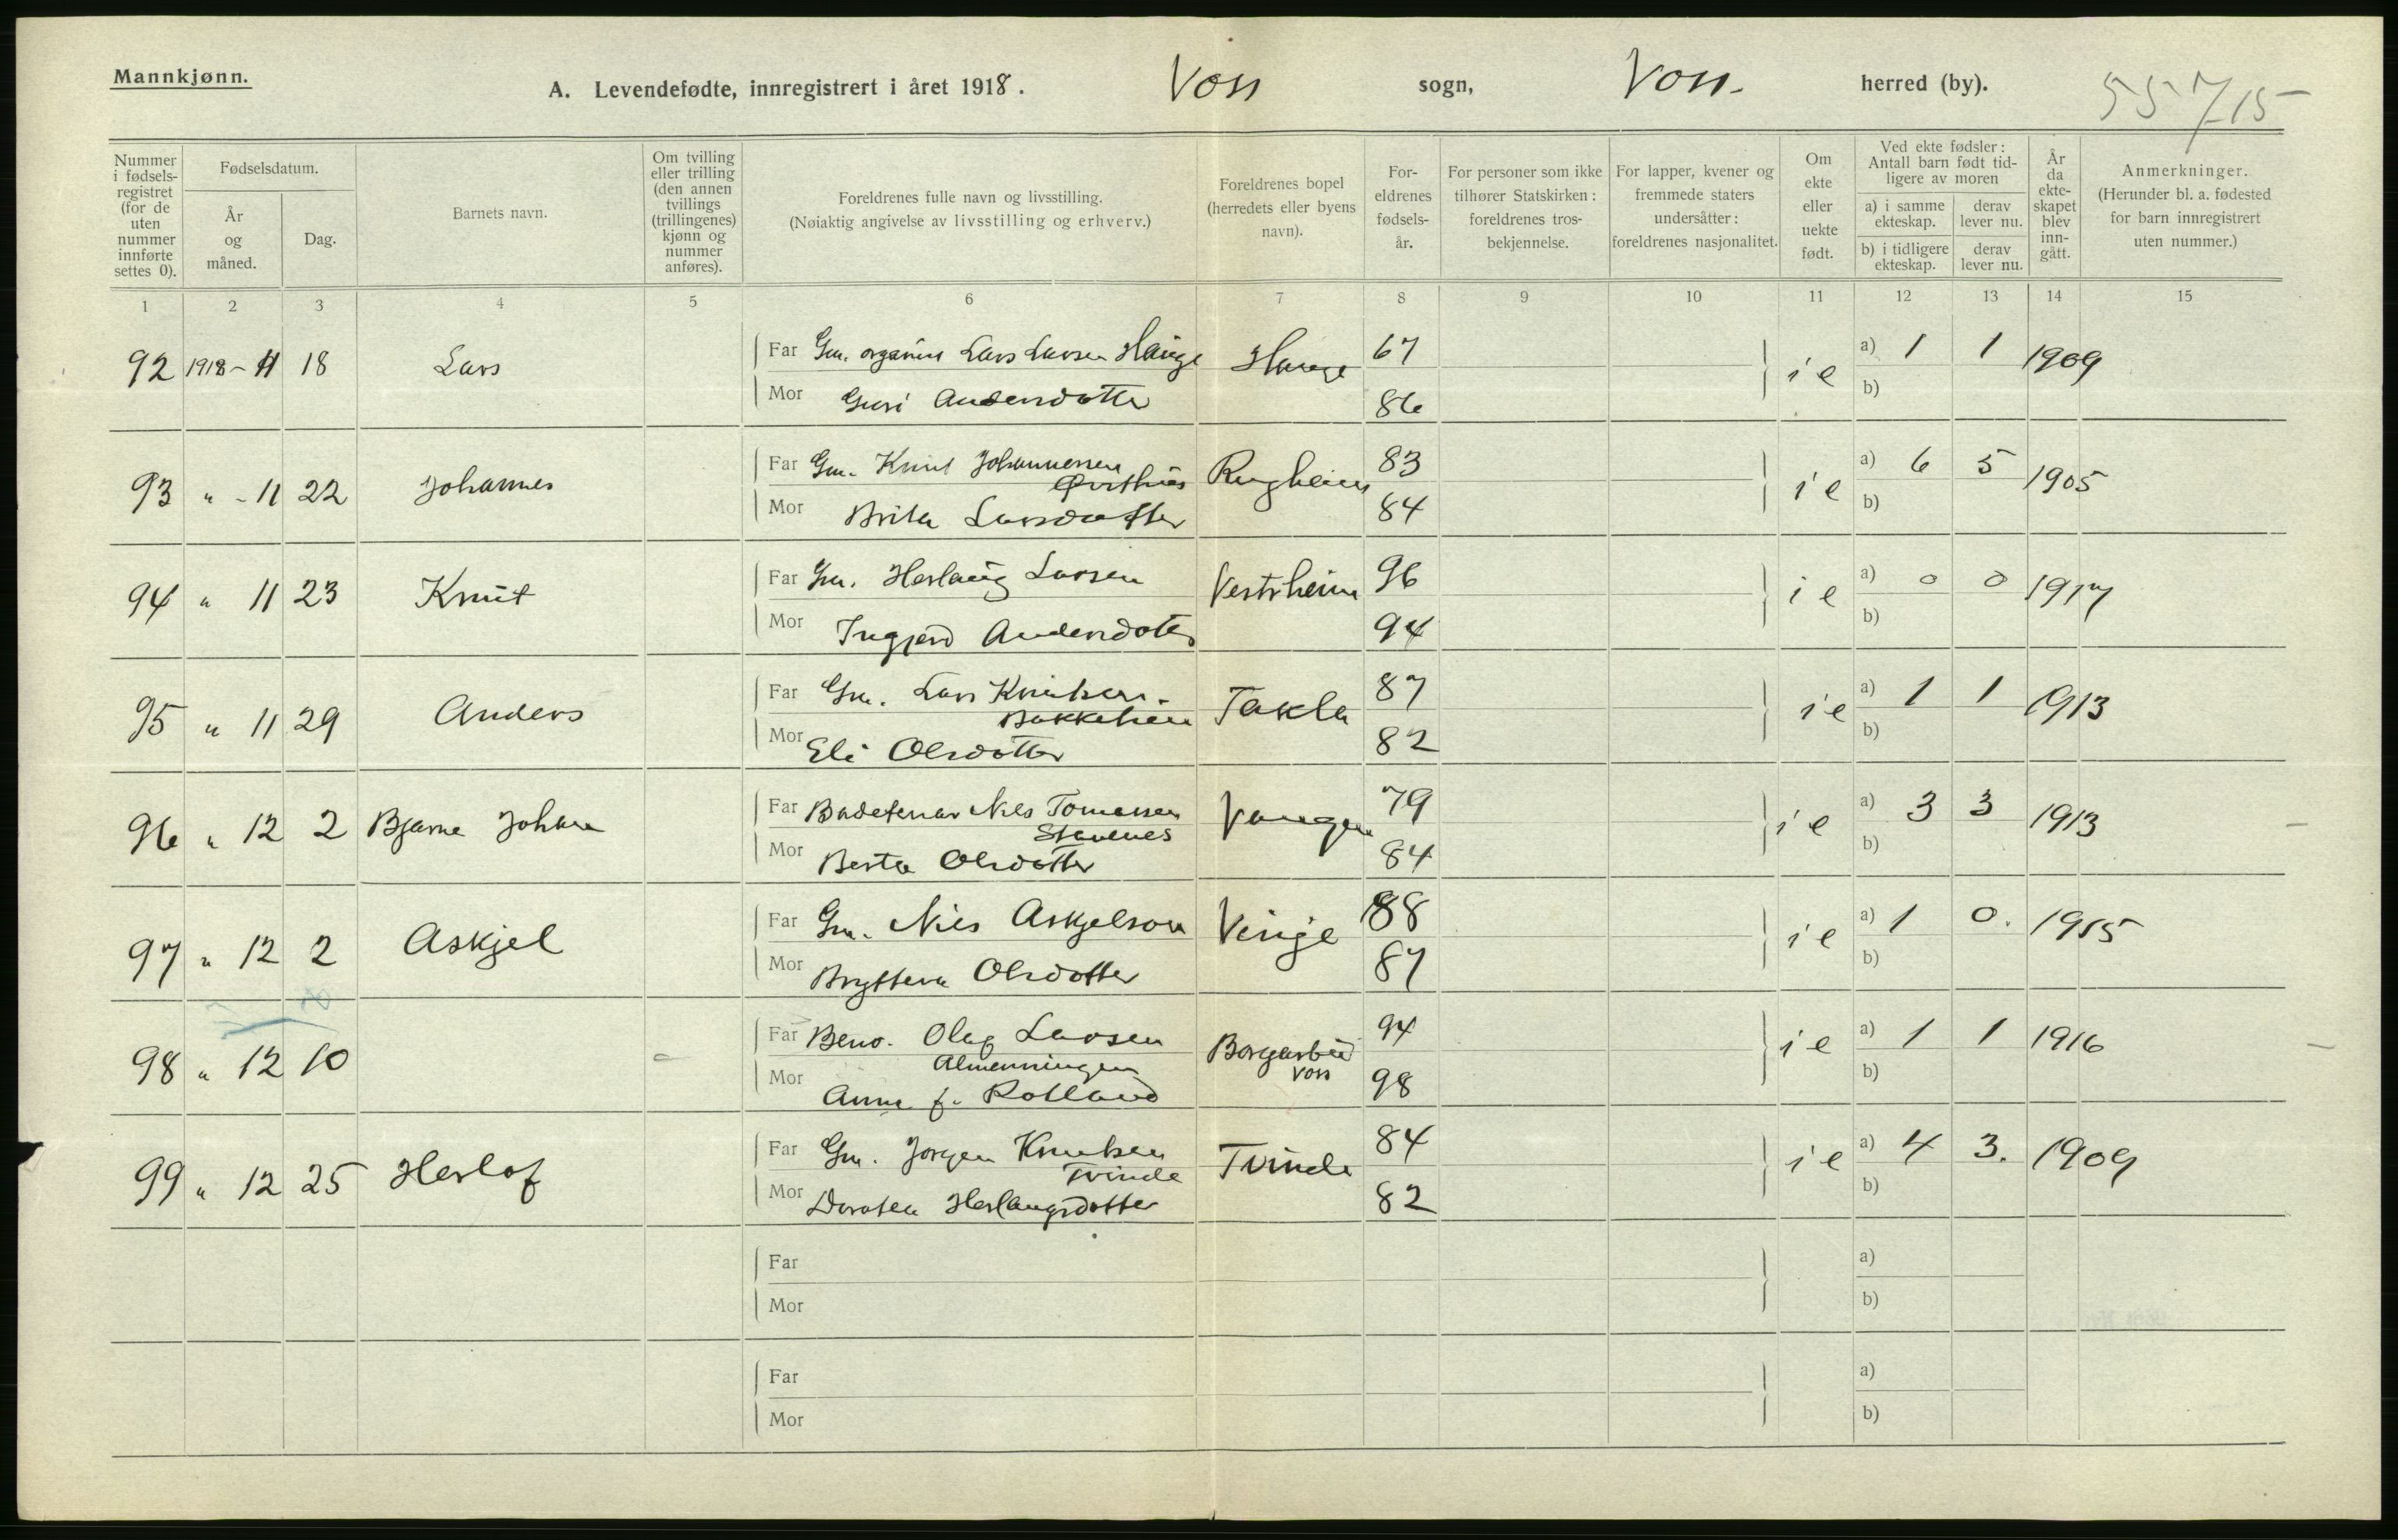 Mannkjønn.
A. Levendefødte, innregistrert i året 1918. Voss sogn, Voss. herred (by).
55715
Nummer i fødsels-registret (for de uten nummer innførte settes 0).
Fødselsdatum.
År og måned.
Dag.
Barnets navn.
Om tvilling eller trilling (den annen tvillings (trillingenes) kjønn og nummer anføres).
Foreldrenes fulle navn og livsstilling.
(Nøiaktig angivelse av livsstilling og erhverv.)
Foreldrenes bopel (herredets eller byens navn).
For-eldrenes fødsels-år.
For personer som ikke tilhører Statskirken: foreldrenes tros-bekjennelse.
For lapper, kvener og fremmede staters undersåtter: foreldrenes nasjonalitet.
Om ekte eller uekte født.
Ved ekte fødsler: Antall barn født tid-ligere av moren
a) i samme ekteskap.
derav lever nu.
b) i tidligere ekteskap.
derav lever nu.
År da ekte-skapet blev inn-gått.
Anmerkninger.
(Herunder bl. a. fødested for barn innregistrert uten nummer.)
1 2 3 4 5 6 7 8 9 10 11 12 13 14 15
92 1918-11 18 Lars Far Gm. organist Lars Larsen Hauge Hauge 67 i e a) 1 1 1909
Mor Guri Andersdotter 86 b)
93 " - 11 22 Johannes Far Gm. Knut Johannessen Ringheim 83 i e a) 6 5 1905
Mor Brita Larsdotter 84 b)
94 " 11 23 Knut Far Gm. Herlaug Larsen Vestrheim 96 i e a) 0 0 1917
Mor Ingjerd Andersdotter 94 b)
95 " 11 29 Anders Far Gm. Lars Knutsen. Takla 87 i e a) 1 1 1913
Mor Eli Olsdotter 82 b)
96 " 12 2 Bjarne Johan Far Nils Tomassen Vangen 79 i e a) 3 3 1913
Stavenes
Mor Berta Olsdotter 84 b)
97 " 12 2 Askjel Far Gm. Nils Askjelson Vinje 88 i e a) 1 0. 1915
Mor Brytteva Olsdotter 87 b)
98 " 12 10 Far Olaf Larsen 94 i e a) 1 1 1916
Almenningen Voss
Mor Anna f. Rolland 98 b)
99 " 12 25 Herlof Far Gm. Jørgen Knutsen Tvinde 84 i e a) 4 3. 1909
Tvinde
Mor Dorotea Herlaugsdotter 82 b)
Far a)
Mor b)
Far a)
Mor b)